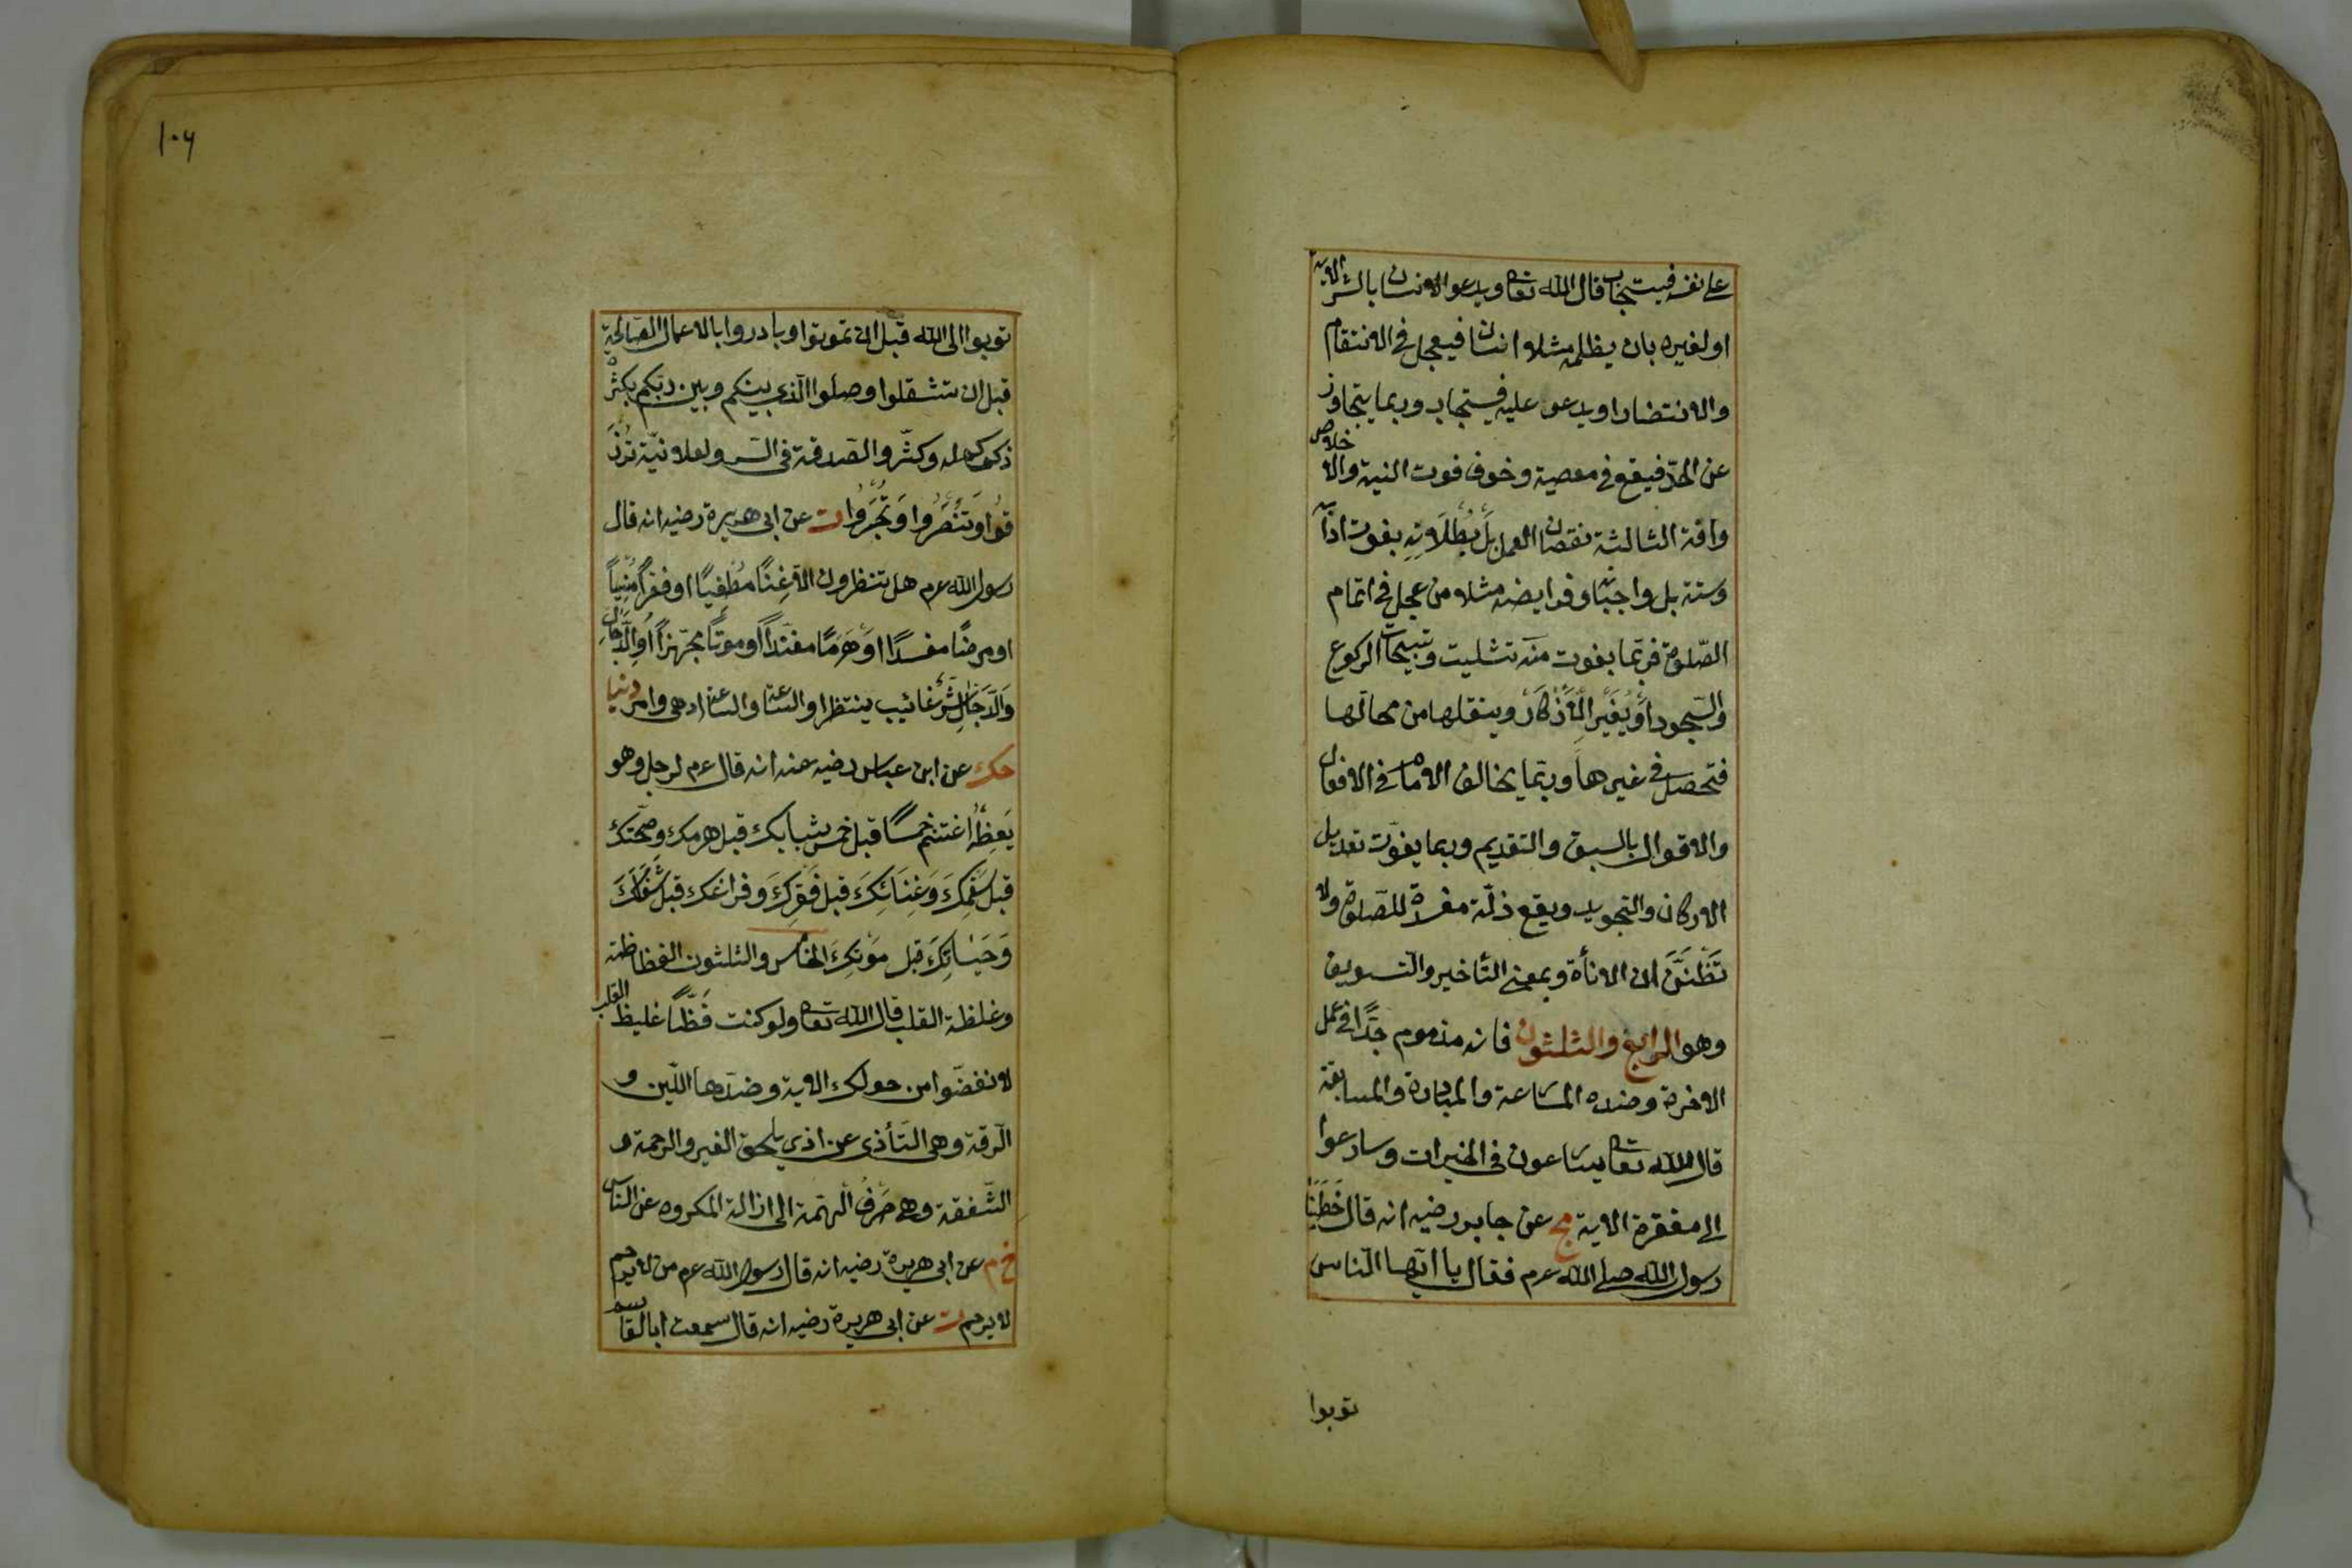 على نفسه فيستجاب قال الله تعا ويدعو الانسان بالشر الاية
او لغيره بان يظلمه مثلا انسان فيعجل في الانتقام
والانتصار او يدعو عليه فيستجاب وربما يتجاوز
عن الحدّ فيقع في معصية وخوف فوت النية والاخلاص
وافة الثالثة نقصان العمل بل بُطْلَانِهِ بفوت ادابه
وسننه بل واجباته وفرايضه مثلا من عجل في اتمام
الصّلوة فربّما يفوت منه تثليث وتسبيحات الركوع
والسّجود أو يُغَيِّر الأَذْكَار وينقلها من محالّها
فتحصل في غيرها وربّما يخالف الامام في الافعال
والاقوال بالسبق والتقديم وربما يفوّت تعديل
الاركان والتجويد ويقع ذلّة مفسدة للصّلوة ولا
تَظُنَنَّ ان الاناة وبمعنى التأخير والتسويف
وهو الرابع والثلثون فانه مذموم جدًّا في عمل
الاخرة وضده المسارعة والمبادرة والمسابقة
قال الله تعا يسارعون في الخيرات وسارعوا
الى مغفرة الاية مج عن جابر رضيه انه قال خَطَبَنَا
رسول الله صلى الله عم فقال يا ايّها النّاس
توبوا
١٠٦
توبوا الى الله قبل ان تموتوا وبادروا بالاعمال الصّالحة
قبل ان تشقلوا وصلوا الّذي بينكم وبين ربّكم بكثرة
ذكركم له وكثّر والصّدقة في السّر ولعلانيّة تُرْزَ
قُوا وَتُنْصَرُوا وَتُجْبَرُوا ت عن ابى هريرة رضيه انه قال
رسول الله عم هل تنظرون الّا غِنًا مُطْغِيًا او فقراً مُنْسِياً
او مرضًا مفسدًا اَوْ هَرَمًا مفنّدًا او موتًا مجهّزاً أَوِ الدّجال
وَالدّجّال شَرُّ غائب ينتظر او السّاعة والسّاعة ادهى وامر دنيا
حك عن ابن عباس رضيه عنه انه قال عم لرجل وهو
يَعِظُهُ اغتنم خمسًا قبل خمس شبابك قبل هرمك وصحّتك
قبل سَقَمِكَ وَغِنَائِكَ قبل فَقْرِكَ وفراغك قبل شُغْلِكَ
وَحَيٰاتِكَ قبل مَوْتِكَ الخامس والثلثون الفظاظة
وغلظة القلب قال الله تعا ولو كنت فَظًّا غليظ القلب
لانفضّوا من حولك الاية وضدّها اللّين و
الرّقة وهى التّأذى عن اذي يلحق الغير والرحمة و
الشّفقة وهى صَرْفُ الْهِمّة الى ازالة المكروه عن الناس
خ م عن ابى هريرة رضيه انه قال رسول الله عم من لا يرحم
لا يرحم ت عن ابى هريرة رضيه انه قال سمعت ابا القاسم